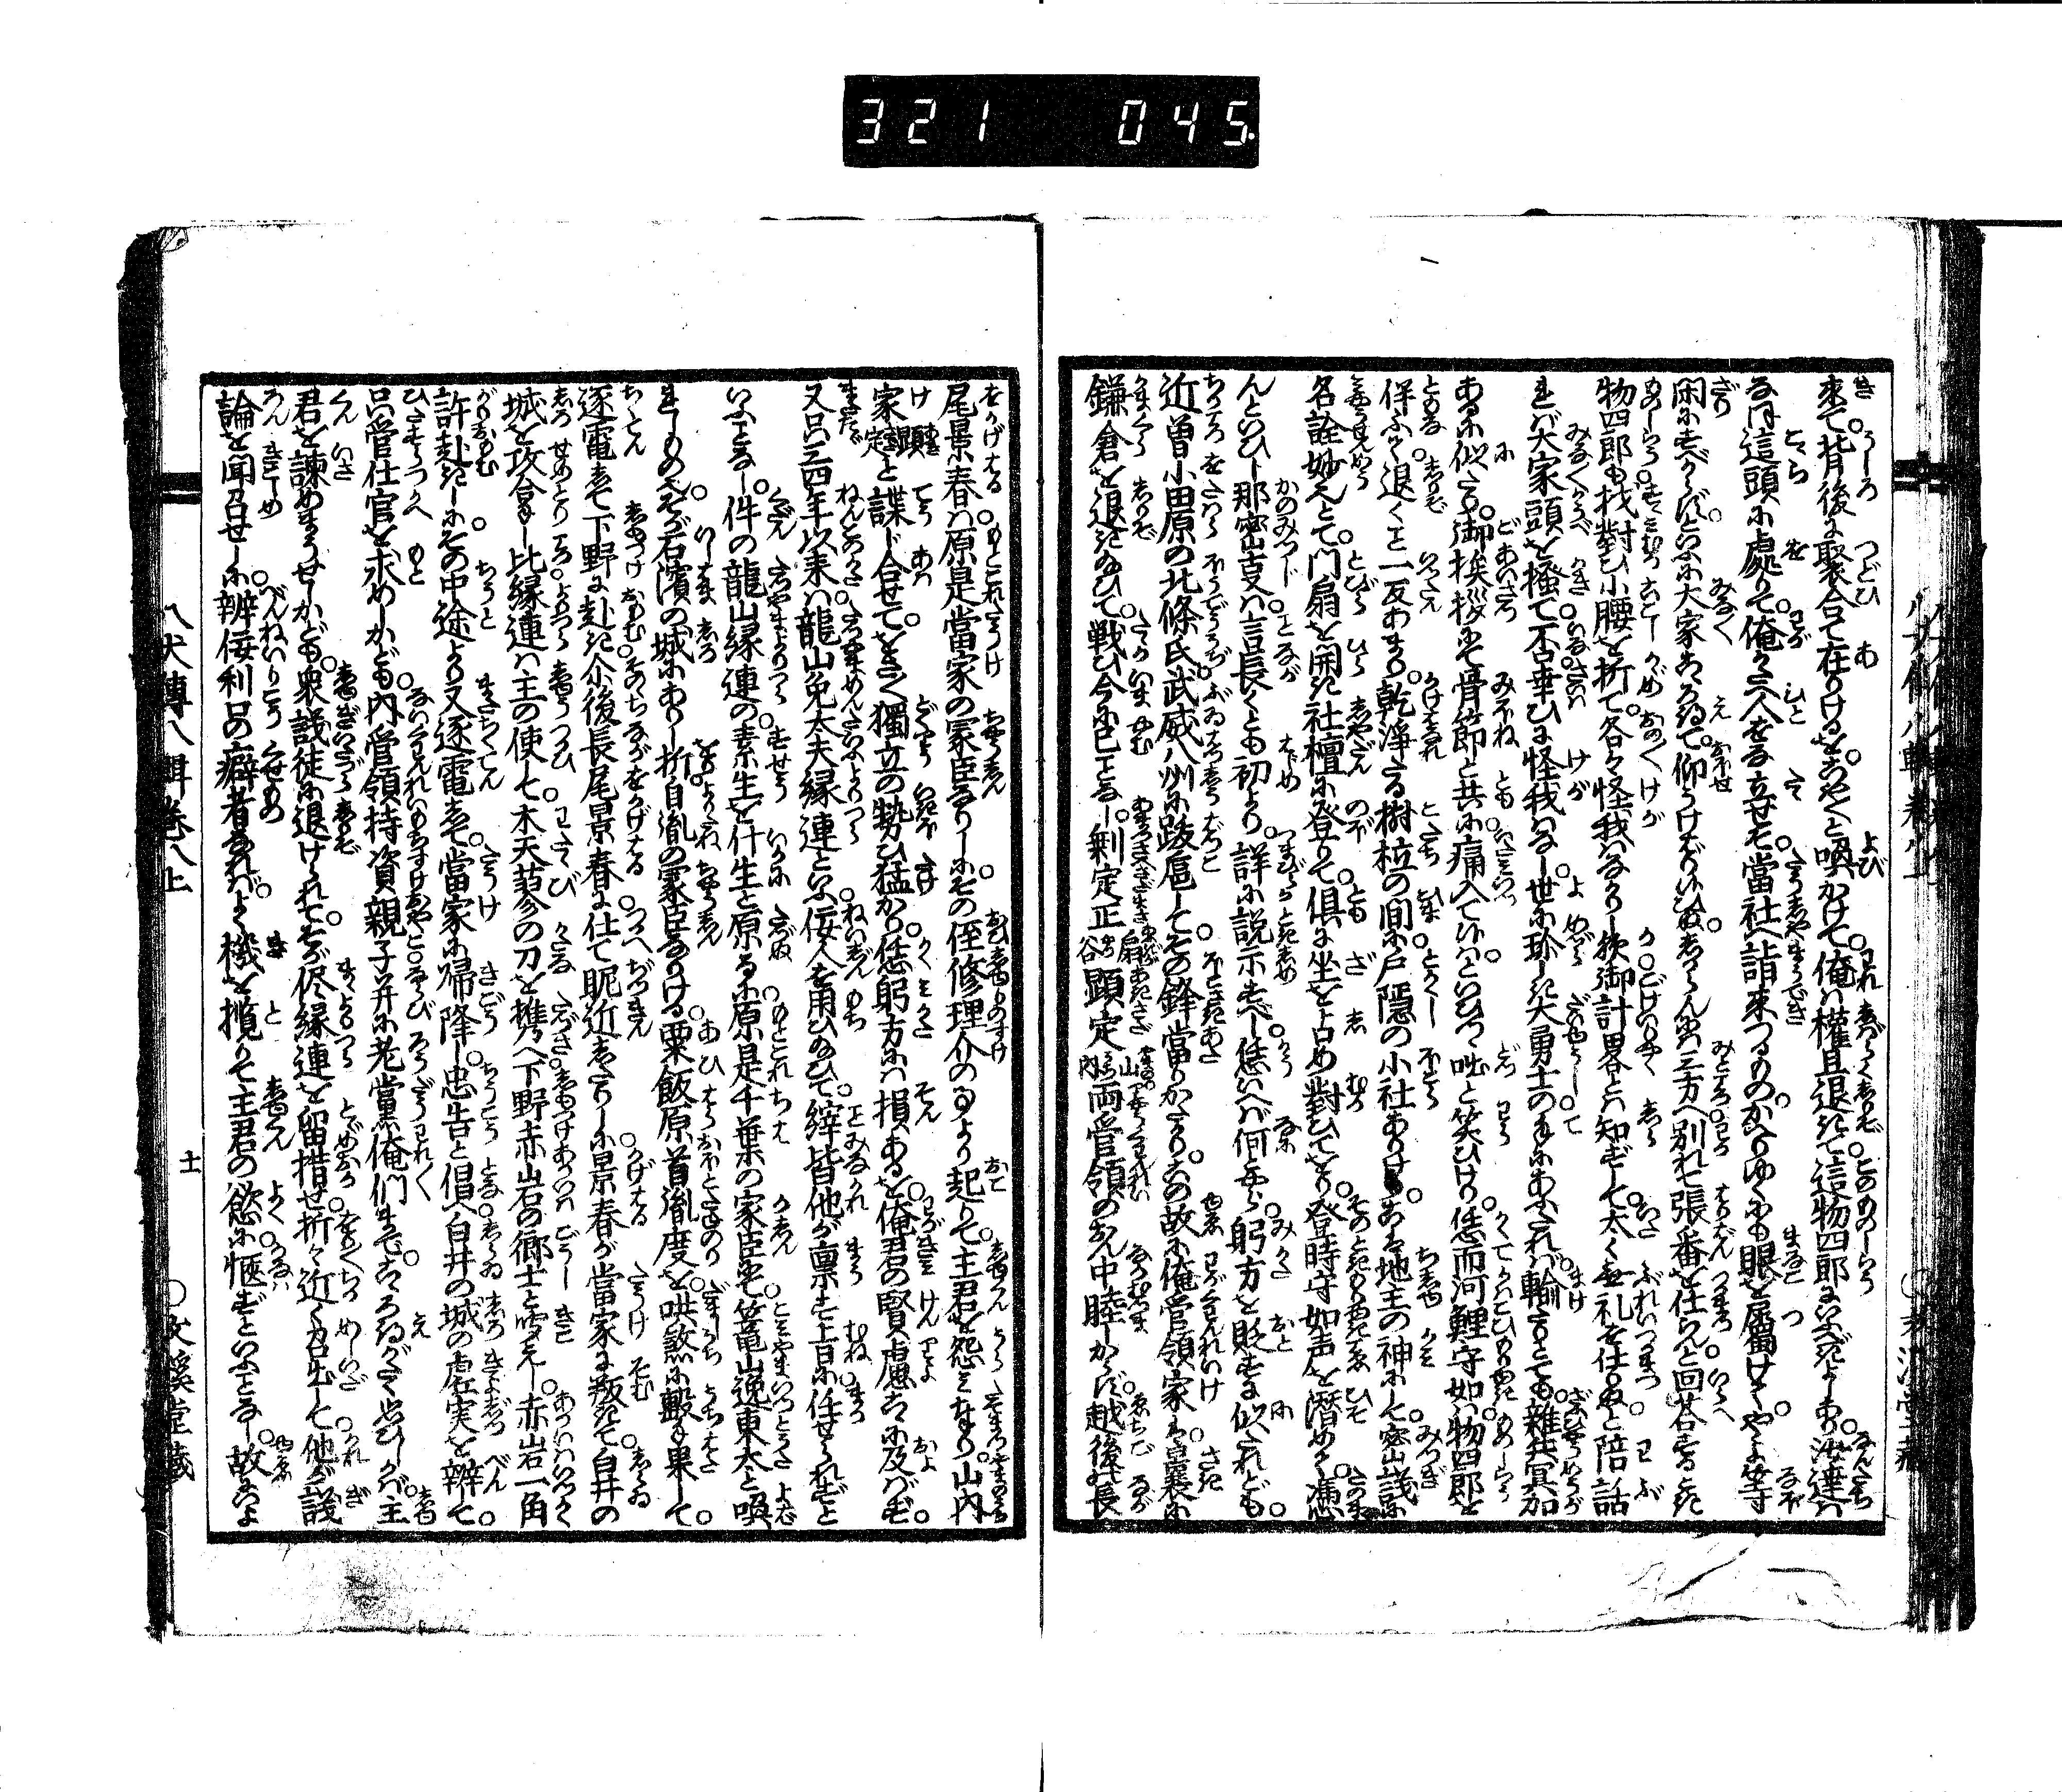 321 045
来て背後に聚合て在りけるを。きやと喚かけて。俺は權且退きて這物四郎にいふべきよしあり。汝達は
なほ這頭に處りて。俺が為人をな立せそ。當社へ詣来つるもの。かへりゆくにも眼を属けてやよ等
閑にすべからず。といふに大家こゝろ得て。仰うけ給はり候ひぬ。しからんには三方へ別れて張番を仕らんと回答るとき
物四郎も找對ひ小腰を折て。各々怪我はなかりし欤。御計畧とは知ずして太く無礼を仕りぬと陪話
すれば大家頭を掻て。不幸ひに怪我はなし。世に珎しき大勇士の手にあふたれば輸るとても雜兵冥加
あるに似たる。御挨拶にて骨節と共に痛入て候。といひつゝ咄と笑ひけり。恁而河鯉守如は物四郎を
伴ふて退くこと一反あまり。乾浄なる樹柆の間に戸隠の小社ありけり。こは地主の神にして密議に
名詮妙也とて。門扇を開き社檀に登りて。倶に坐を占め對ひてをり。登時守如声を潜めて。憑
んといひし那密叓は。言長くとも初より。詳に説示すべし。恁いへば何とやら躬方を貶すに似たれども。
近曽小田原の北條氏。武威八州に跋扈してその鋒當りがたかり。この故に俺管領家は曩に
鎌倉を退き給ひて。戦ひ今に已ことなし。剰定正扇谷顯定山内両管領のおん中睦しからず。越後の長
尾景春は。原是當家の家臣なりしに。その侄修理介の事より起りて主君を怨みまつり。山内
家顯定と諜じ合せて。をさ〳〵獨立の勢ひ猛かり。恁躬方には損あるを。俺君の賢慮こゝに及ばず。
又只三四年以来は。龍山免太夫縁連といふ佞人を用ひ給ひて。縡皆他が禀す旨に任せられずと
いふことなし。件の龍山縁連の。素生を什生と原るに。原是千葉の家臣にて。篭山逸東太と喚
れしものゝ。そが石濱の城にありし折。自胤の家臣なりける。粟飯原首胤度を哄煞に轂果して。
逐電して下野に赴き。尓後長尾景春に仕て。昵近したりしに。景春が當家に叛きて白井の
城を攻拿し比。縁連は主の使して。木天蓼の刀を携へ。下野赤岩の郷士と聞えし。赤岩一角
許赴きしに。その中途より又逐電して。當家に帰降し忠告と倡へ。白井の城の虚実を辨じて。
只管仕官を求めしかども。内管領持資親子并に老黨俺們まで。こゝろ得がたく思ひしかば。主
君を諌めまうせしかども。衆議徒に退けられて。そが侭縁連を留措せ。折々近く召出して。他が議
論を聞召せしに。辨佞利口の癖者なれば。よく機を攬りて主君の慾に愜ずといふことなし。故によ
八犬傳八輯巻八上　十一　○文溪堂藏